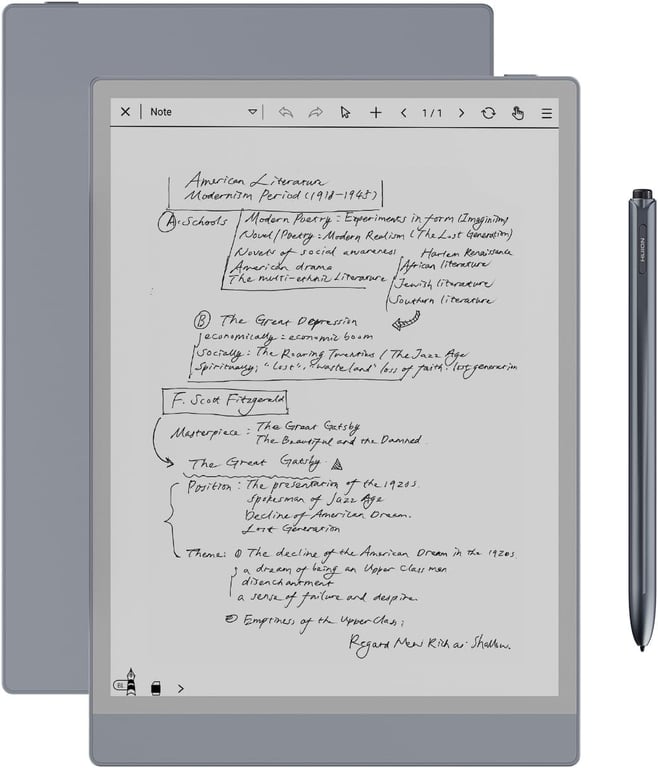 Note
1/1
American Literature
Modernism Period (1918-1945)
A. Schools
Modern Poetry: Experiments in form (Imaginism)
Novel/Poetry: Modern Realism (The Lost Generation)
Novels of social awareness
American drama
The multi-ethnic Literature
Harlem Renaissance
African literature
Jewish literature
Southern literature
B The Great Depression
economically: economic boom
Socially: The Roaring Twenties / The Jazz Age
Spiritually: "lost", "wasteland" loss of faith. lost generation
F. Scott Fitzgerald
Masterpiece: The Great Gatsby
The Beautiful and the Damned.
The Great Gatsby.
Position: The presentation of the 1920s.
Spokesman of Jazz Age
Decline of American Dream.
Lost Generation
Theme: ① The decline of the American Dream in the 1920s
a dream of being an Upper Class men
disenchantment
a sense of failure and despire.
② Emptiness of the Upper Class:
Regard Mens Rich as Shallow.